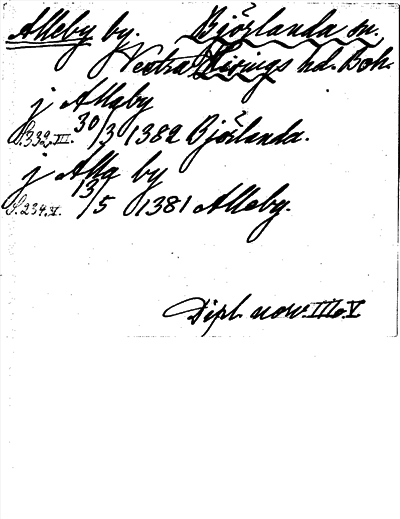 Alleby by. Björlanda sn.
Vestra Hisings hd. Boh.
j Allaby
S.332.III. 30/3 1382 Björlanda.
j Alla by
S.234.V. 13/5 1381 Alleby.
Dipl. norv. III o. V